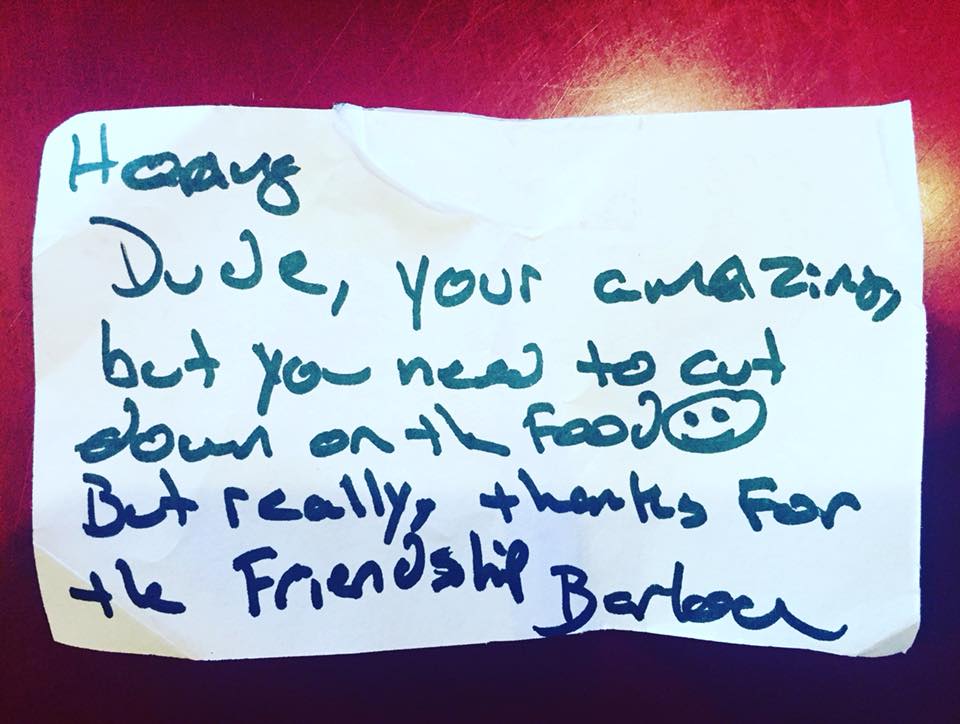 Dude, your amazing,
but you need to cut
down on the Food
But really, thanks For
the Friendship